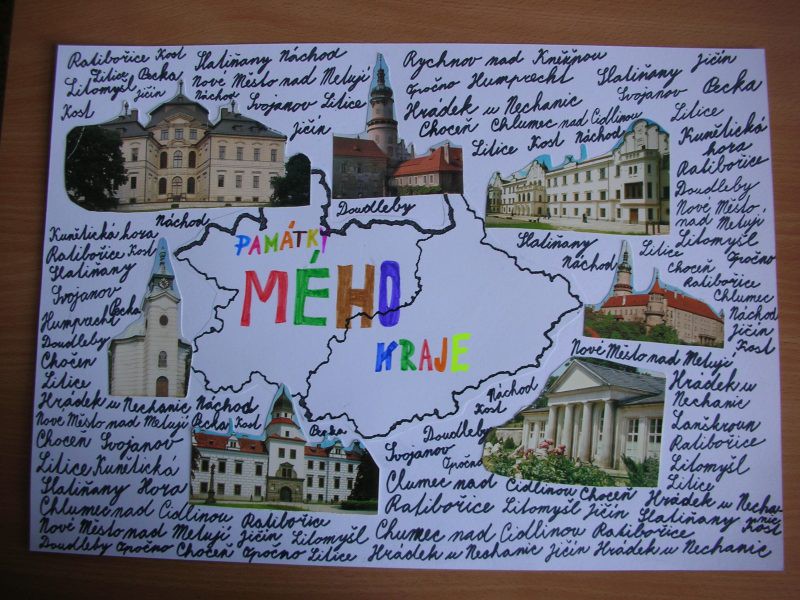 Ratibořice Kost Slatiňany Náchod Rychnov nad Kněžnou Jičín
Litice Pecka Nové Město nad Metují Opočno Humprecht Slatiňany Pecka
Litomyšl Jičín Náchod Svojanov Litice Hrádek u Nechanic Svojanov Litice
Kost Jičín Choceň Chlumec nad Cidlinou
Litice Kost Náchod
Kunětická
hora
Ratibořice
Doudleby
Nové Město
nad Metují
Litomyšl
Opočno
Náchod Doudleby
Slatiňany Litice
Náchod Choceň
Ratibořice
Chlumec
Náchod
Jičín
Kost
Kunětická hora
Ratibořice Kost
Slatiňany
Svojanov
Humprecht Pecka
Doudleby
Choceň
Litice
PAMÁTKY
MÉHO
KRAJE
Nové Město nad Metují
Hrádek u
Nechanic
Lanškroun
Ratibořice
Litomyšl
Litice
Náchod
Kost
Doudleby
Svojanov
Opočno
Hrádek u Nechanic Náchod
Nové Město nad Metují Pecka Kost Pecka
Choceň Svojanov
Litice Kunětická
Slatiňany Hora
Clumec nad Cidlinou Choceň Hrádek u Nechanic
Chlumec nad Cidlinou Ratibořice Ratibořice Litomyšl Jičín Slatiňany Kost
Nové Město nad Metují Jičín Litomyšl Chumec nad Cidlinou Ratibořice
Doudleby Opočno Choceň Opočno Litice Hrádek u Neshanic Jičín Hrádek u Nechanic